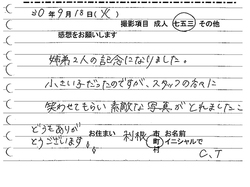 30年9月18日(火)
撮影項目 成人 七五三 その他
感想をお願いします
姉弟2人の記念になりました。
小さい子だったのですが、スタッフの方々に
笑わせてもらい素敵な写真がとれましたこ
どうもありが
とうございます
お住まい 利根 市町村 お名前
イニシャルで
C、T